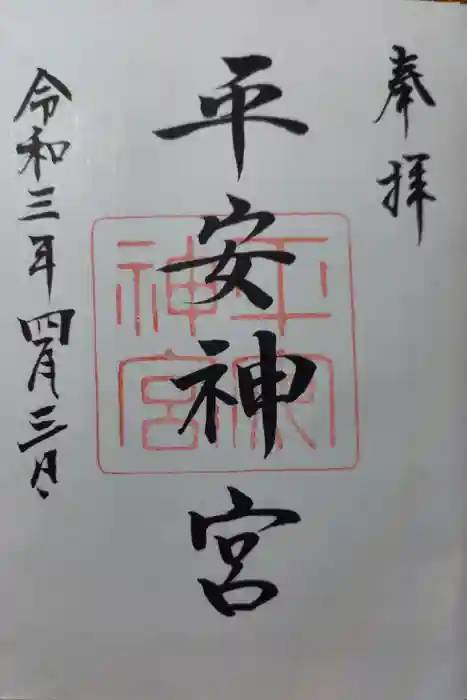 奉拝
平安神宮
平安神宮
令和三年四月三日